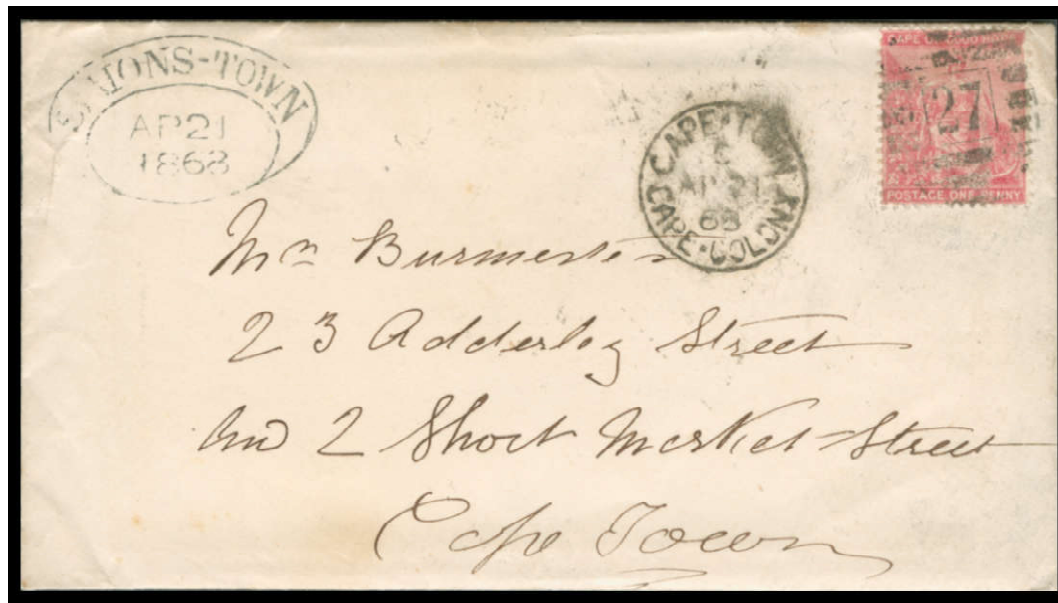 SIMONS-TOWN
AP 21
1868
CAPE • TOWN
AP 21
68
CAPE • COLONY
CAPE OF GOOD HOPE
27
POSTAGE ONE PENNY
Mr Burmester
23 Adderley Street
And 2 Short Market Street
Cape Town